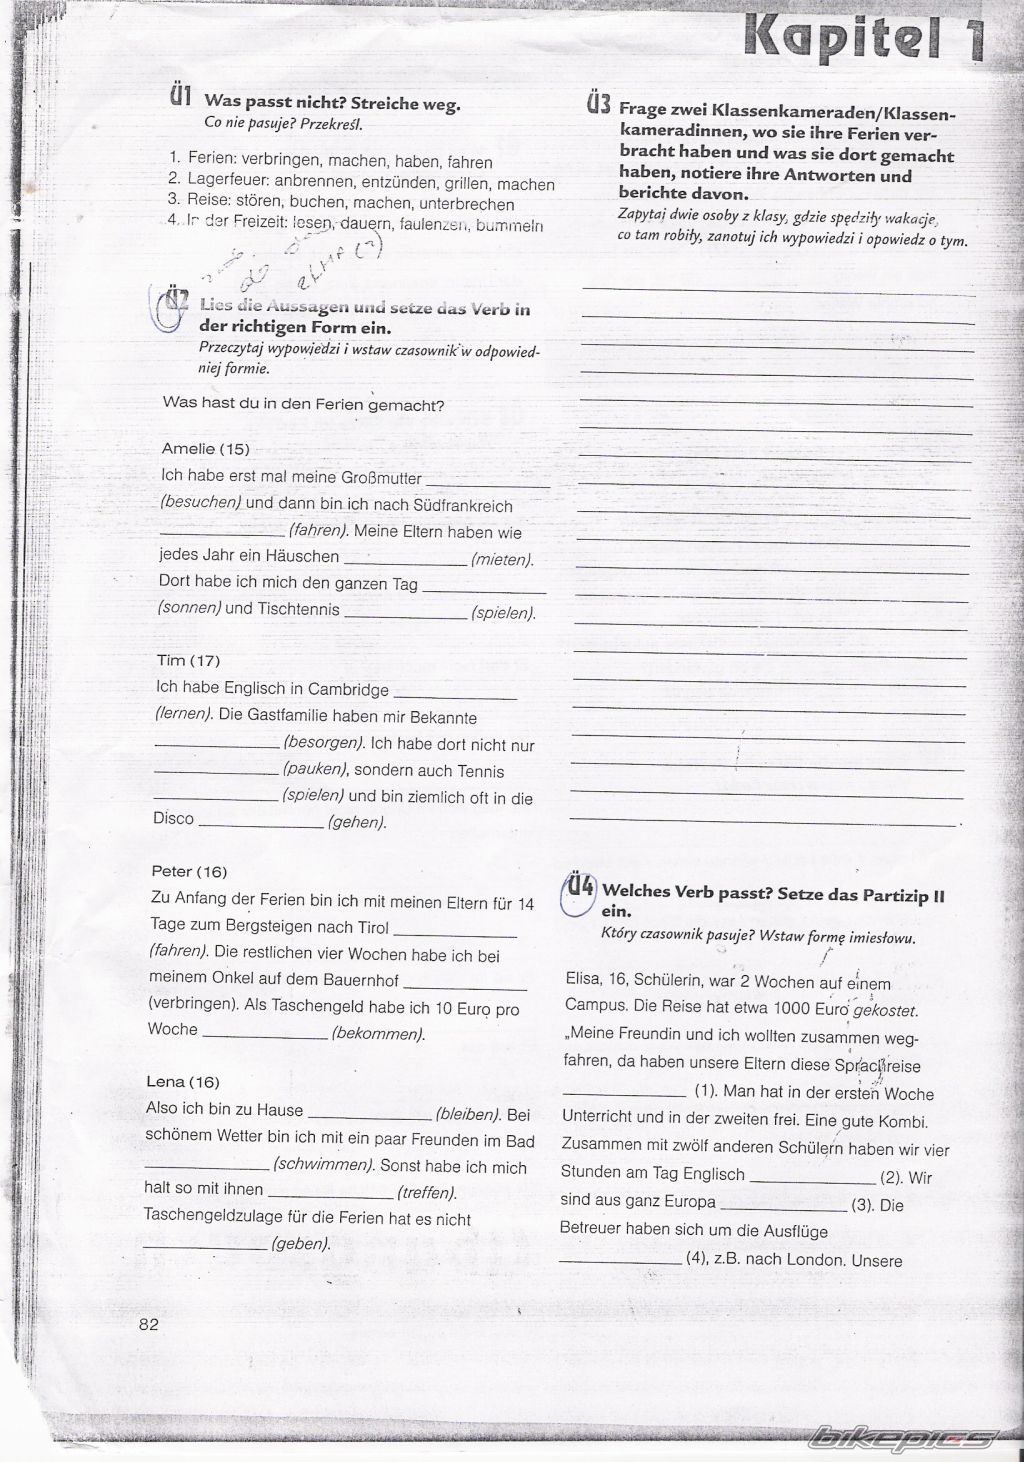 Kapitel 1
Ü1 Was passt nicht? Streiche weg.
Co nie pasuje? Przekreśl.
1. Ferien: verbringen, machen, haben, fahren
2. Lagerfeuer: anbrennen, entzünden, grillen, machen
3. Reise: stören, buchen, machen, unterbrechen
4. In der Freizeit: lesen, dauern, faulenzen, bummeln
Ü2 Lies die Aussagen und setze das Verb in
der richtigen Form ein.
Przeczytaj wypowiedzi i wstaw czasownik w odpowied-
niej formie.
Was hast du in den Ferien gemacht?
Amelie (15)
Ich habe erst mal meine Großmutter ____________
(besuchen) und dann bin ich nach Südfrankreich
____________ (fahren). Meine Eltern haben wie
jedes Jahr ein Häuschen ____________ (mieten).
Dort habe ich mich den ganzen Tag ____________
(sonnen) und Tischtennis ____________ (spielen).
Tim (17)
Ich habe Englisch in Cambridge ____________
(lernen). Die Gastfamilie haben mir Bekannte
____________ (besorgen). Ich habe dort nicht nur
____________ (pauken), sondern auch Tennis
____________ (spielen) und bin ziemlich oft in die
Disco ____________ (gehen).
Peter (16)
Zu Anfang der Ferien bin ich mit meinen Eltern für 14
Tage zum Bergsteigen nach Tirol ____________
(fahren). Die restlichen vier Wochen habe ich bei
meinem Onkel auf dem Bauernhof ____________
(verbringen). Als Taschengeld habe ich 10 Euro pro
Woche ____________ (bekommen).
Lena (16)
Also ich bin zu Hause ____________ (bleiben). Bei
schönem Wetter bin ich mit ein paar Freunden im Bad
____________ (schwimmen). Sonst habe ich mich
halt so mit ihnen ____________ (treffen).
Taschengeldzulage für die Ferien hat es nicht
____________ (geben).
82
Ü3 Frage zwei Klassenkameraden/Klassen-
kameradinnen, wo sie ihre Ferien ver-
bracht haben und was sie dort gemacht
haben, notiere ihre Antworten und
berichte davon.
Zapytaj dwie osoby z klasy, gdzie spędziły wakacje,
co tam robiły, zanotuj ich wypowiedzi i opowiedz o tym.
Ü4 Welches Verb passt? Setze das Partizip II
ein.
Który czasownik pasuje? Wstaw formę imiesłowu.
Elisa, 16, Schülerin, war 2 Wochen auf einem
Campus. Die Reise hat etwa 1000 Euro gekostet.
„Meine Freundin und ich wollten zusammen weg-
fahren, da haben unsere Eltern diese Sprachreise
____________ (1). Man hat in der ersten Woche
Unterricht und in der zweiten frei. Eine gute Kombi.
Zusammen mit zwölf anderen Schülern haben wir vier
Stunden am Tag Englisch ____________ (2). Wir
sind aus ganz Europa ____________ (3). Die
Betreuer haben sich um die Ausflüge
____________ (4), z.B. nach London. Unsere
bikepics